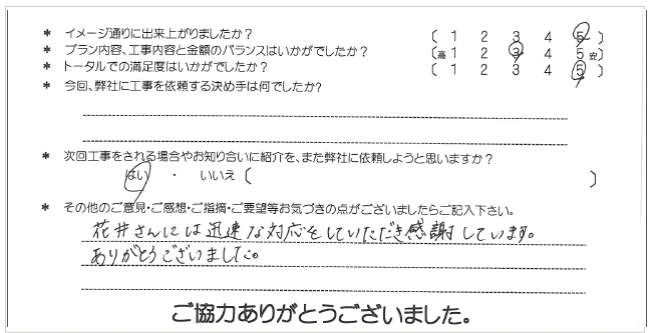 * イメージ通りに出来上がりましたか? ( 1 2 3 4 5 )
* プラン内容、工事内容と金額のバランスはいかがでしたか? (高 1 2 3 4 5 安)
* トータルでの満足度はいかがでしたか? ( 1 2 3 4 5 )
* 今回、弊社に工事を依頼する決め手は何でしたか?
* 次回工事をされる場合やお知り合いに紹介を、また弊社に依頼しようと思いますか?
はい ・ いいえ ( )
* その他のご意見・ご感想・ご指摘・ご要望等お気づきの点がございましたらご記入下さい。
花井さんには迅速な対応をしていただき感謝しています。
ありがとうございました。
ご協力ありがとうございました。